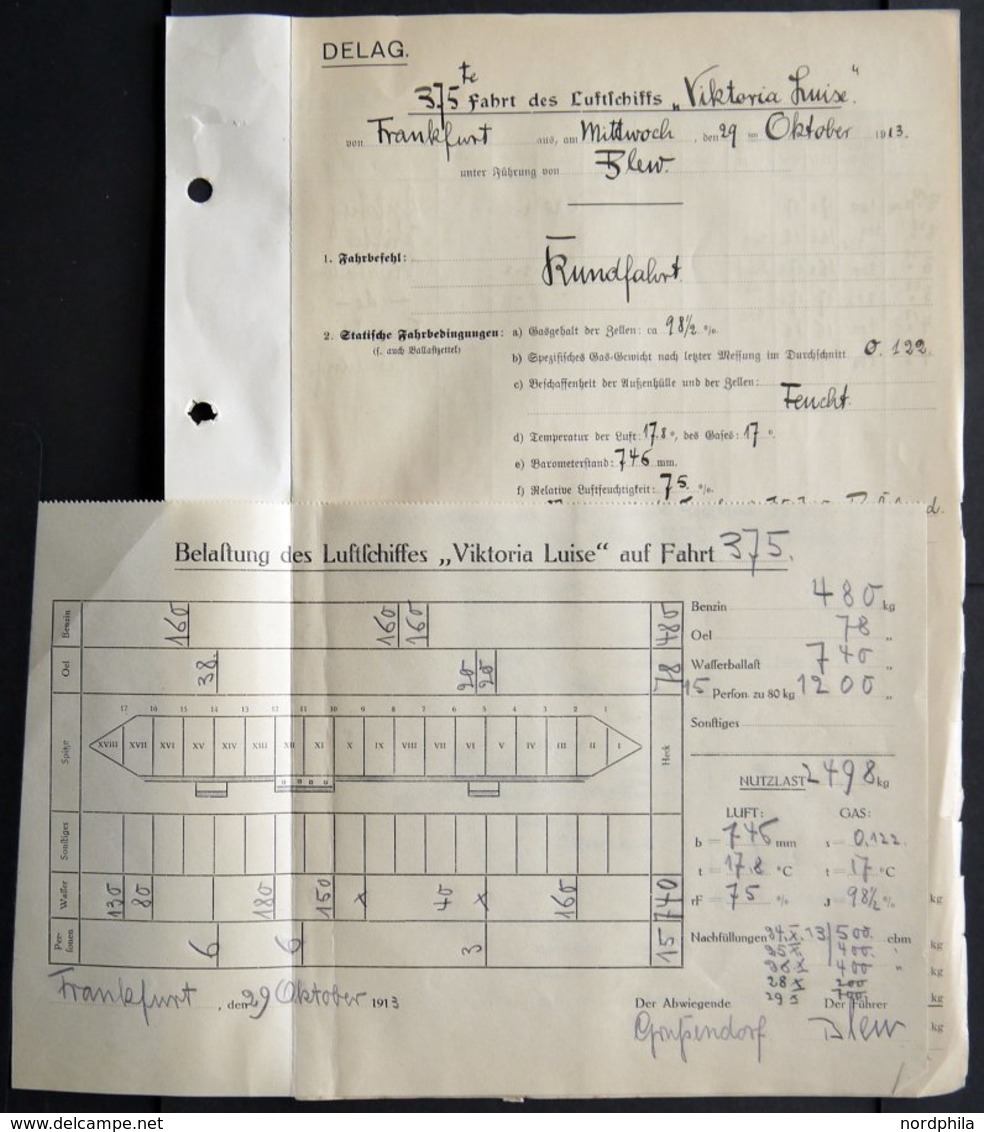 DELAG.
375te Fahrt des Luftschiffs „Viktoria Luise.“
von Frankfurt aus, am Mittwoch, den 29 ten Oktober 1913.
unter Führung von Blew.
1. Fahrbefehl: Rundfahrt.
2. Statische Fahrbedingungen: a) Gasgehalt der Zellen: ca 98½ %.
(s. auch Ballastzettel)
b) Spezifisches Gas-Gewicht nach letzter Messung im Durchschnitt 0.122.
c) Beschaffenheit der Außenhülle und der Zellen:
Feucht.
d) Temperatur der Luft: 17.8°, des Gases: 17°.
e) Barometerstand: 746 mm.
f) Relative Luftfeuchtigkeit: 75 %.
Belastung des Luftschiffes „Viktoria Luise“ auf Fahrt 375.
Benzin 160 160 160 480
Oel 38. 20 20 78
17 16 15 14 13 12 11 10 9 8 7 6 5 4 3 2 1
Spitze XVIII XVII XVI XV XIV XIII XII XI X IX VIII VII VI V IV III II I Heck
Sonstiges
Wasser 130 80 180 150 x 40 x 160 740
Personen 6 6 3 15
Benzin 480 kg
Oel 78 „
Wasserballast 740 „
15 Person. zu 80 kg 1200 „
Sonstiges
NUTZLAST 2498 kg
LUFT: GAS:
b = 746 mm s = 0.122.
t = 17.8 °C t = 17 °C
rF = 75 % J = 98½ %
kg
Nachfüllungen 24.X.13 500. cbm
kg
25 X. 400. „
28 X 400 „
kg
28 X 200
29 700
kg
Frankfurt, den 29 Oktober 1913
Der Abwiegende Der Führer
Blew
kg
nordphila